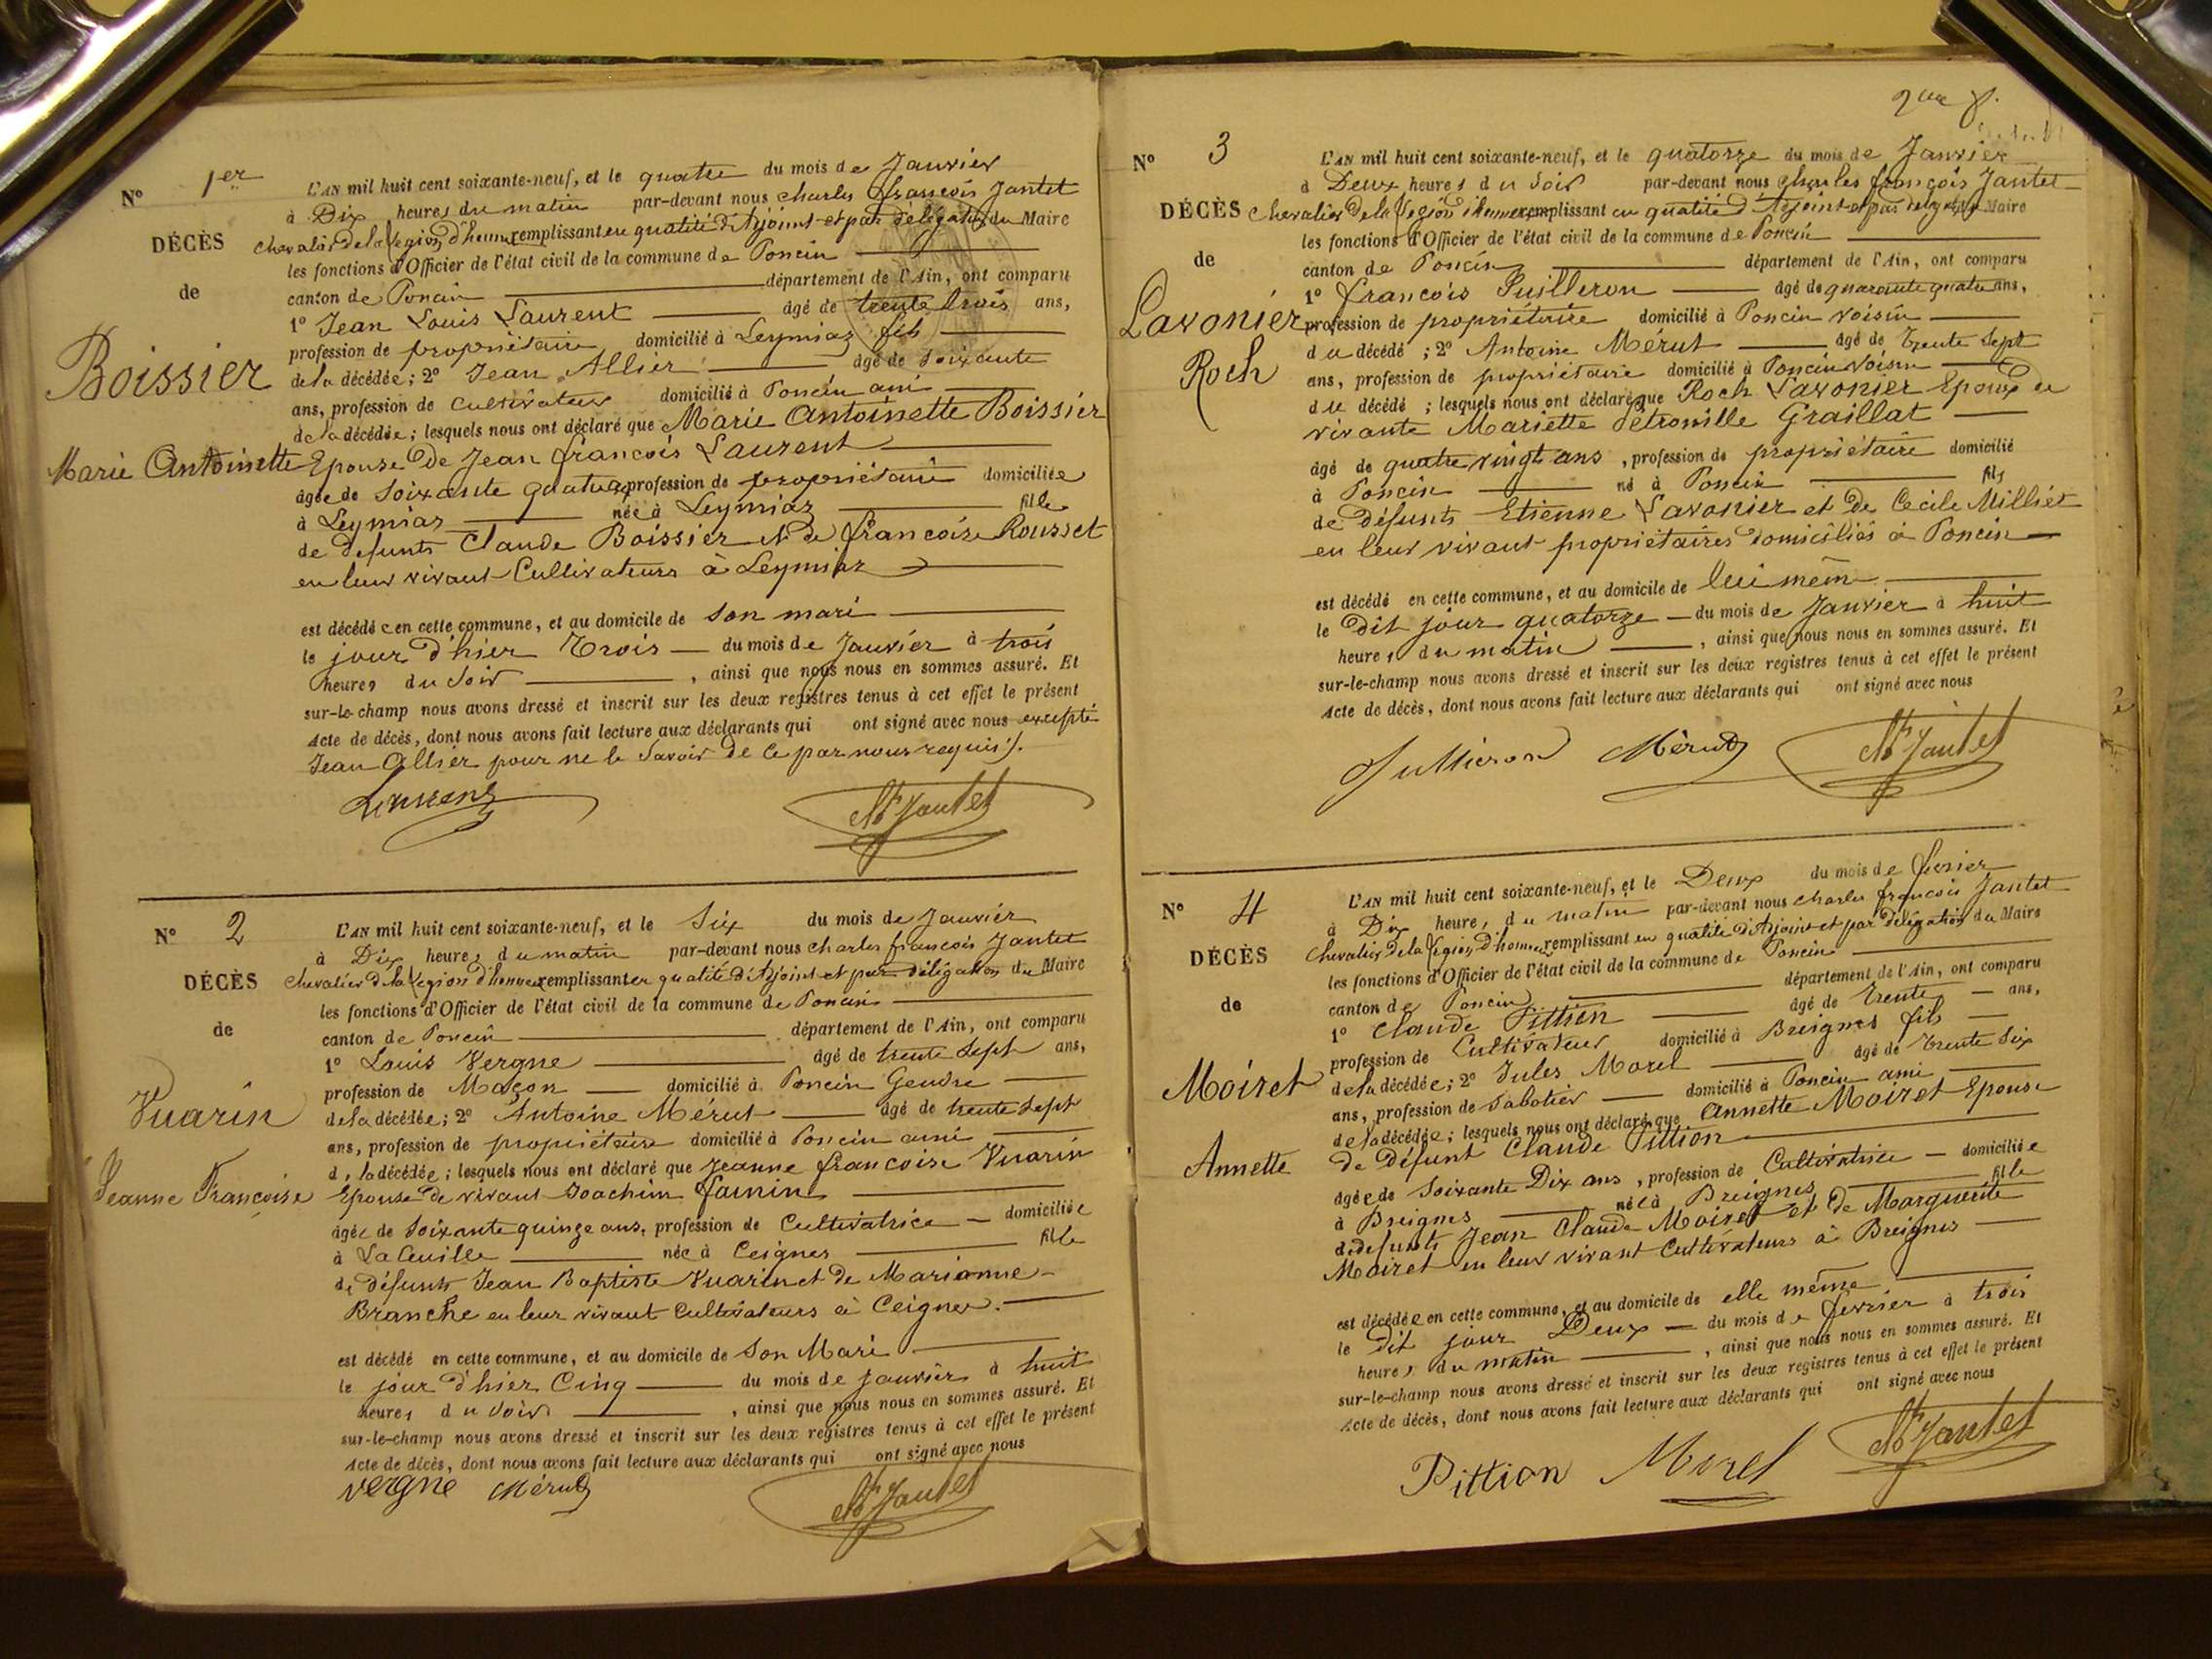 No 1er
DÉCÈS
de
Boissier
Marie Antoinette
L'AN mil huit cent soixante-neuf, et le quatre du mois de Janvier
à Dix heures du matin par-devant nous Charles François Jantet
chevalier de la Légion d'honneur remplissant en qualité d'Adjoint et par délégation du Maire
les fonctions d'Officier de l'état civil de la commune de Poncin
canton de Poncin département de l'Ain, ont comparu
1o Jean Louis Laurent âgé de trente trois ans,
profession de propriétaire domicilié à Leymiaz fils
de la décédée; 2o Jean Allier âgé de soixante
ans, profession de cultivateur domicilié à Poncin ami
de la décédée; lesquels nous ont déclaré que Marie Antoinette Boissier
Epouse de Jean françois Laurent
âgée de soixante quatre profession de propriétaire domiciliée
à Leymiaz née à Leymiaz fille
de defunts Claude Boissier et de françoise Rousset
en leur vivant Cultivateurs à Leymiaz
est décédée en cette commune, et au domicile de son mari
le jour d'hier Trois du mois de Janvier à trois
heures du soir , ainsi que nous nous en sommes assuré. Et
sur-le-champ nous avons dressé et inscrit sur les deux registres tenus à cet effet le présent
Acte de décès, dont nous avons fait lecture aux déclarants qui ont signé avec nous excepté
Jean Allier pour ne le savoir de ce par nous requis
Laurent Jantet
No 2
DÉCÈS
de
Vuarin
Jeanne Françoise
L'AN mil huit cent soixante-neuf, et le Six du mois de Janvier
à Dix heures du matin par-devant nous Charles françois Jantet
Chevalier de la Légion d'honneur remplissant en qualité d'Adjoint et par délégation du Maire
les fonctions d'Officier de l'état civil de la commune de Poncin
canton de Poncin département de l'Ain, ont comparu
1o Louis Vergne âgé de trente Sept ans,
profession de Maçon domicilié à Poncin Gendre
de la décédée; 2o Antoine Mérut âgé de trente sept
ans, profession de propriétaire domicilié à Poncin ami
de la décédée; lesquels nous ont déclaré que Jeanne françoise Vuarin
Epouse de vivant Joachim
âgée de soixante quinze ans, profession de Cultivatrice domiciliée
à La Cueille née à Ceignes fille
de défunts Jean Baptiste Vuarin et de Marianne
Branche en leur vivant Cultivateurs à Ceignes.
est décédé en cette commune, et au domicile de son Mari
le jour d'hier Cinq du mois de Janvier à huit
heures du soir , ainsi que nous nous en sommes assuré. Et
sur-le-champ nous avons dressé et inscrit sur les deux registres tenus à cet effet le présent
Acte de décès, dont nous avons fait lecture aux déclarants qui ont signé avec nous
vergne Mérut Jantet
No 3
DÉCÈS
de
Lavonier
Roch
L'AN mil huit cent soixante-neuf, et le quatorze du mois de Janvier
à Deux heures du soir par-devant nous Charles françois Jantet
Chevalier de la Légion d'honneur remplissant en qualité d'Adjoint et par délégation du Maire
les fonctions d'Officier de l'état civil de la commune de Poncin
canton de Poncin département de l'Ain, ont comparu
1o françois âgé de quarante quatre ans,
profession de propriétaire domicilié à Poncin voisin
du décédé; 2o Antoine Mérut âgé de Trente Sept
ans, profession de propriétaire domicilié à Poncin voisin
du décédé; lesquels nous ont déclaré que Roch Lavonier Epoux de
vivante Mariette Pétronille Graillat
âgé de quatre vingt ans, profession de propriétaire domicilié
à Poncin né à Poncin fils
de défunts Etienne Lavonier et de Cécile Milliet
en leur vivant propriétaires domiciliés à Poncin
est décédé en cette commune, et au domicile de lui même
le dit jour quatorze du mois de Janvier à huit
heures du matin , ainsi que nous nous en sommes assuré. Et
sur-le-champ nous avons dressé et inscrit sur les deux registres tenus à cet effet le présent
Acte de décès, dont nous avons fait lecture aux déclarants qui ont signé avec nous
Mérut Jantet
No 4
DÉCÈS
de
Moiret
Annette
L'AN mil huit cent soixante-neuf, et le Deux du mois de février
à Dix heures du matin par-devant nous Charles françois Jantet
Chevalier de la Légion d'honneur remplissant en qualité d'Adjoint et par délégation du Maire
les fonctions d'Officier de l'état civil de la commune de Poncin
canton de Poncin département de l'Ain, ont comparu
1o Claude Pittion âgé de Trente ans,
profession de Cultivateur domicilié à Breignes fils
de la décédée; 2o Jules Morel âgé de Trente Six
ans, profession de Sabotier domicilié à Poncin ami
de la décédée; lesquels nous ont déclaré que Annette Moiret Epouse
de Défunt Claude Pittion
âgée de Soixante Dix ans, profession de Cultivatrice domiciliée
à Breignes née à Breignes fille
de defunts Jean Claude Moiret et de Marguerite
Moiret en leur vivant Cultivateurs à Breignes
est décédée en cette commune, et au domicile de elle même
le dit jour Deux du mois de février à trois
heures du matin , ainsi que nous nous en sommes assuré. Et
sur-le-champ nous avons dressé et inscrit sur les deux registres tenus à cet effet le présent
Acte de décès, dont nous avons fait lecture aux déclarants qui ont signé avec nous
Pittion Morel Jantet